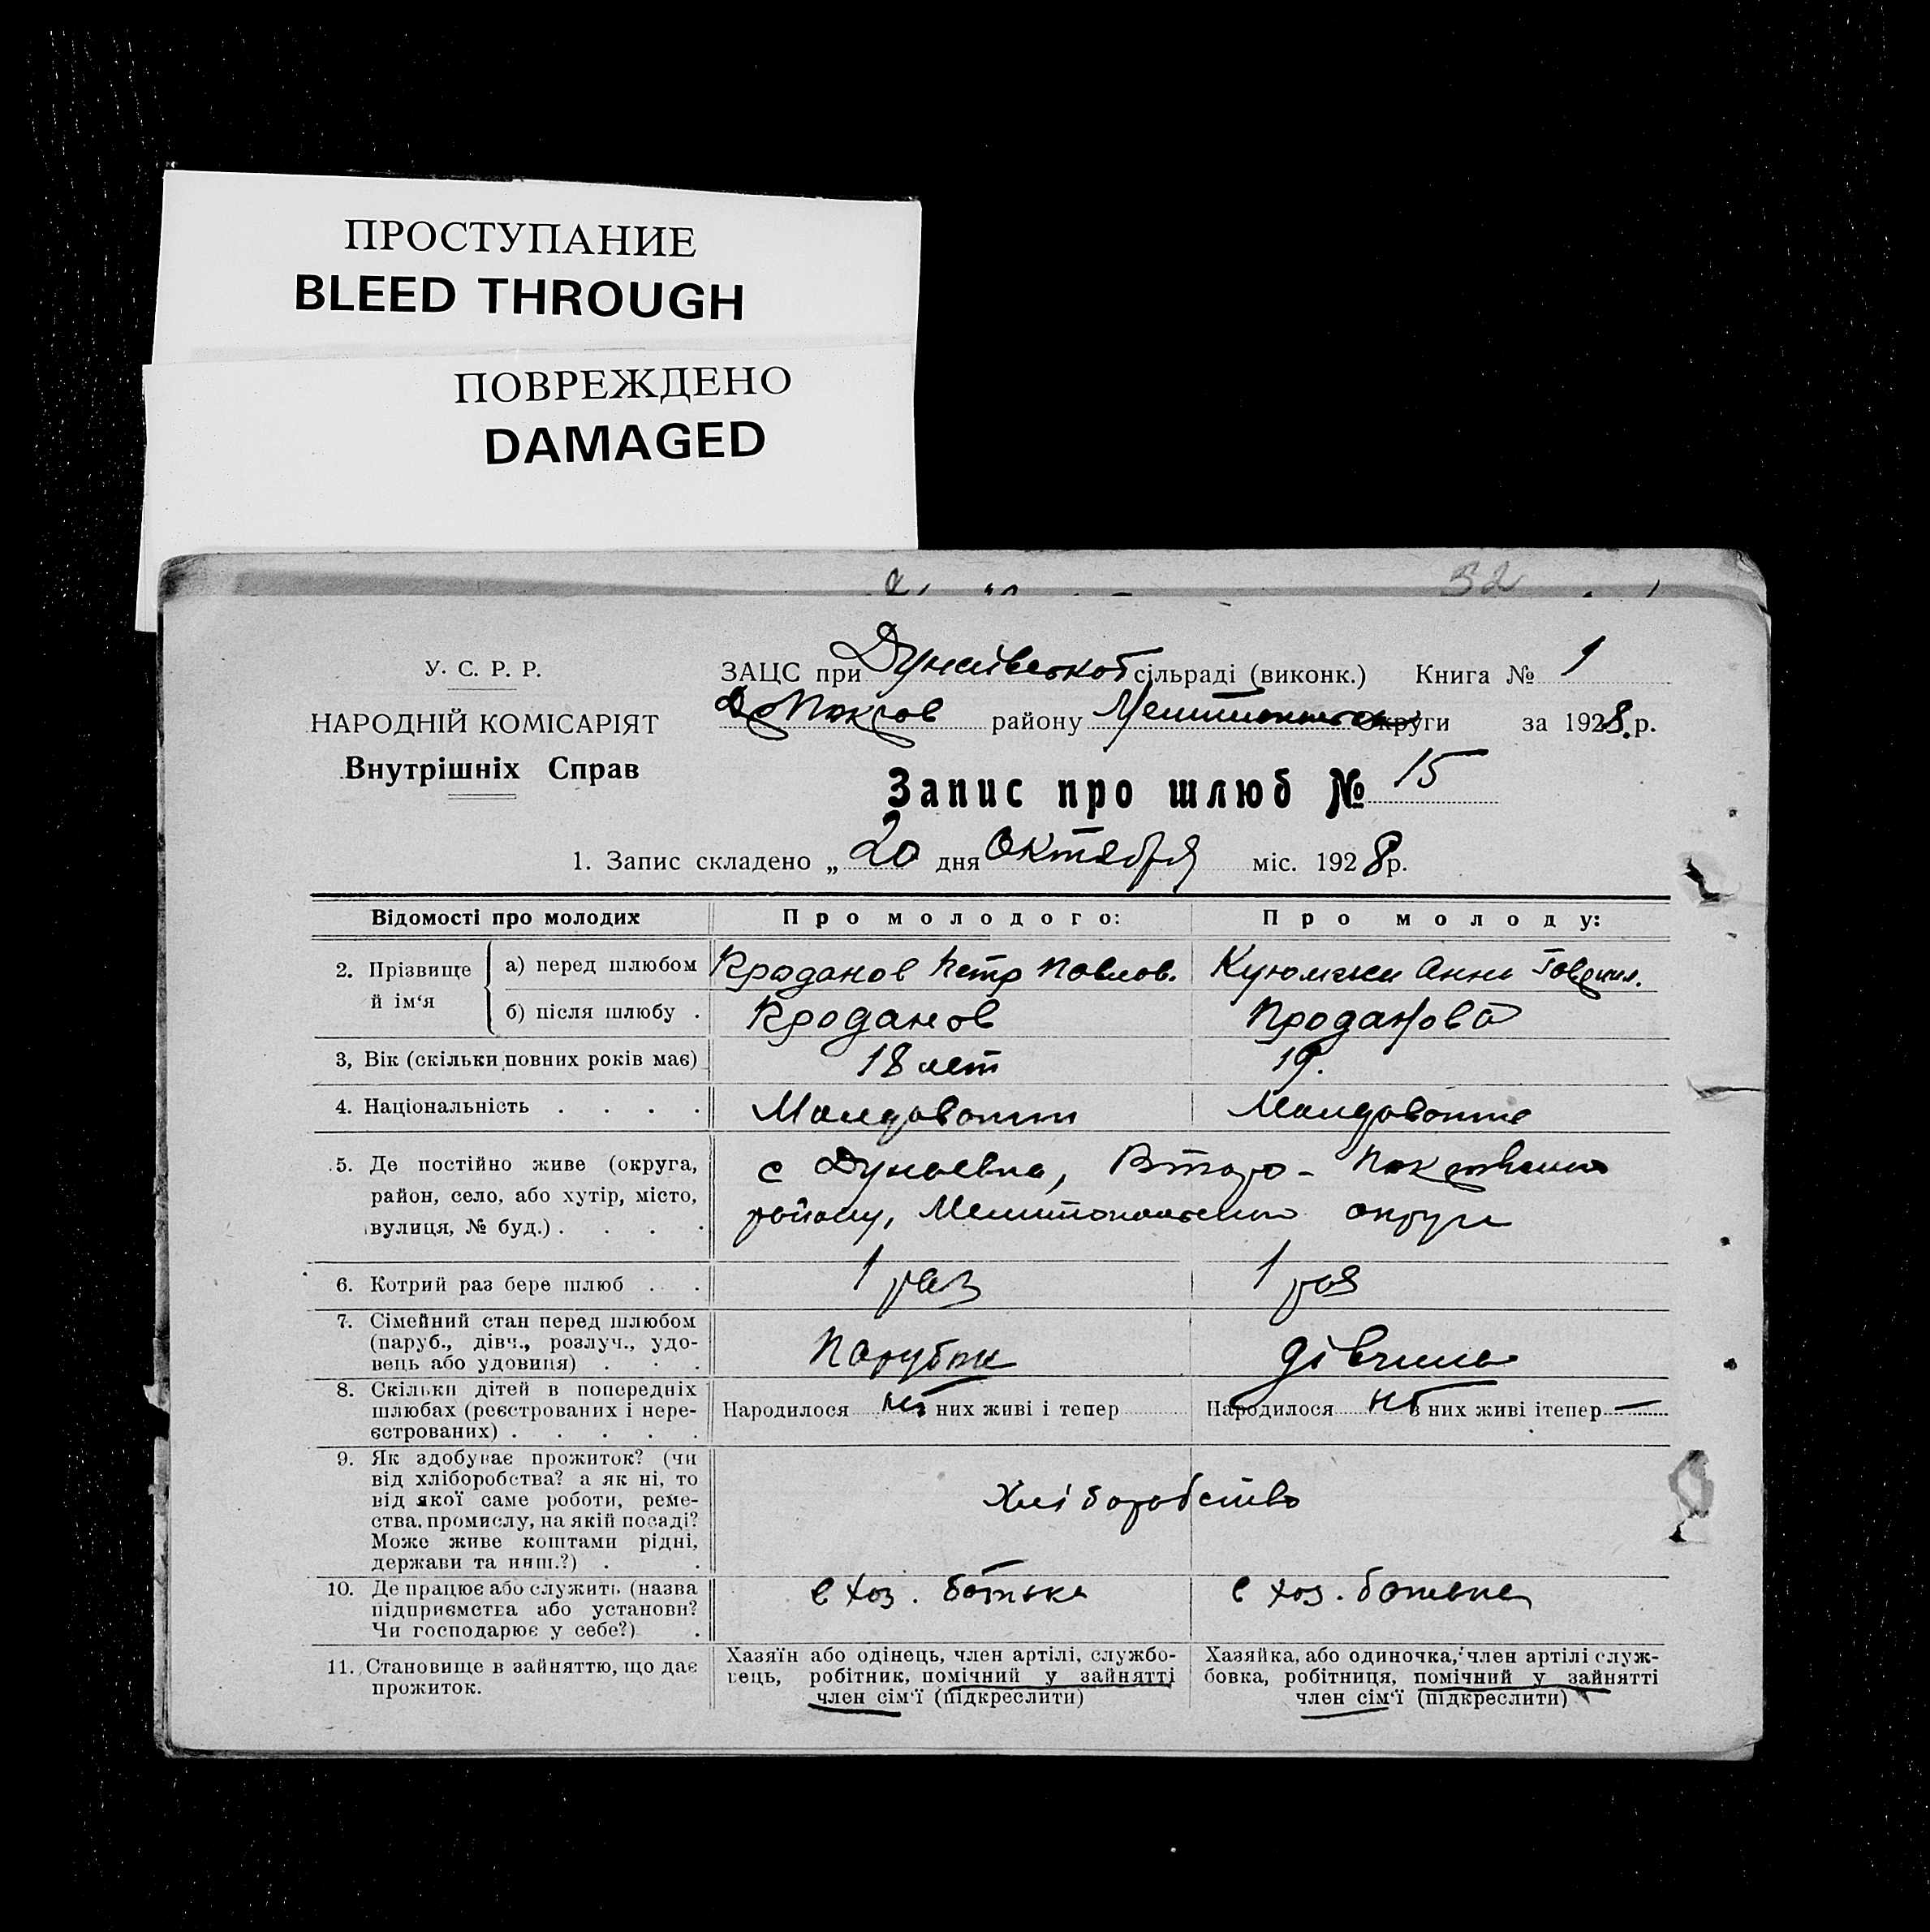 ПРОСТУПАНИЕ
BLEED THROUGH
ПОВРЕЖДЕНО
DAMAGED
32
У. С. Р. Р.
НАРОДНІЙ КОМІСАРІЯТ
Внутрішніх Справ
ЗАЦС при Дунаївської сільраді (виконк.) Книга № 1
району округи за 1928 р.
Запис про шлюб № 15
1. Запис складено „ 20 дня Октября міс. 1928 р.
Відомості про молодих Про молодого: Про молоду:
2. Прізвище й ім‘я
а) перед шлюбом Проданов Петр Павлов. Анна
б) після шлюбу . Проданов Проданова
3, Вік (скільки повних років має) 18 лет 19.
4. Національність . . . .
5. Де постійно живе (округа,
район, село, або хутір, місто,
вулиця, № буд.) . . . .
с Дунаевка, Второ-
району, округи
6. Котрий раз бере шлюб . . 1 раз 1 раз
7. Сімейний стан перед шлюбом
(паруб., дівч., розлуч., удо-
вець або удовиця) . . .
Парубок дівчина
8. Скільки дітей в попередніх
шлюбах (реєстрованих і нере-
єстрованих) . . . . .
Народилося них живі і тепер
Народилося з них живі ітепер —
9. Як здобуває прожиток? (чи
від хліборобства? а як ні, то
від якої саме роботи, реме-
ства, промислу, на якій посаді?
Може живе коштами рідні,
держави та инш.?) . .
Хліборобство
10. Де працює або служить (назва
підприємства або установи?
Чи господарює у себе?) .
в хоз. батька в хоз. батька
11. Становище в зайняттю, що дає
прожиток.
Хазяїн або одінець, член артілі, службо-
вець, робітник, помічний у зайнятті
член сім‘ї (підкреслити)
Хазяйка, або одиночка, член артілі служ-
бовка, робітниця, помічний у зайнятті
член сім‘ї (підкреслити)